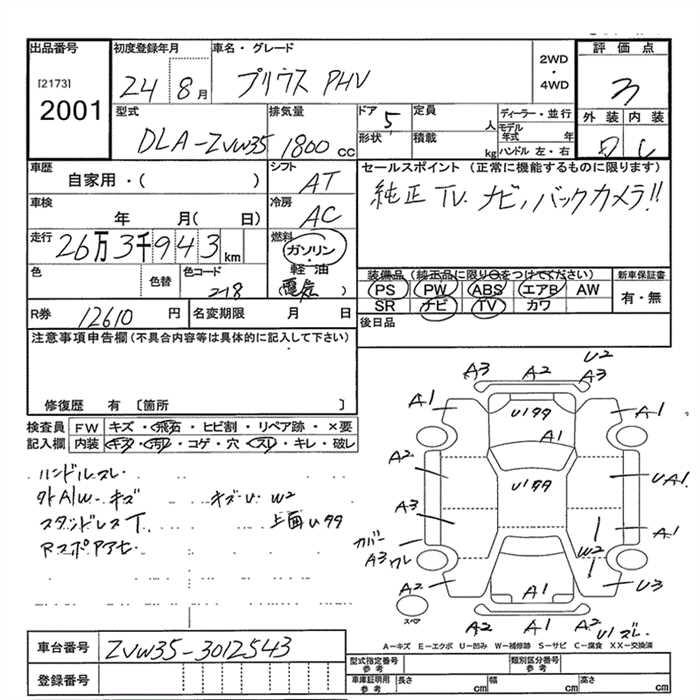 出品番号
[2173]
2001
初度登録年月
24 8月
車名・グレード
プリウス PHV
2WD
・
4WD
評価点
3
外装 内装
型式
DLA-ZVW35
排気量
1800 cc
ドア
5
形状
定員
人
積載
kg
ディーラー・並行
モデル年式 年
ハンドル 左・右
車歴
自家用・( )
シフト
AT
車検
年 月( 日)
冷房
AC
走行
26万3千943km
燃料
ガソリン
・
軽油
(電気)
色
色替
色コード
218
R券
12610円
名変期限 月 日
セールスポイント(正常に機能するものに限ります)
純正TV. ナビ, バックカメラ!!
装備品(純正品に限り○をつけてください)
PS PW ABS エアB AW
SR ナビ TV カワ
新車保証書
有・無
後日品
注意事項申告欄(不具合内容等は具体的に記入して下さい)
修復歴 有 〔箇所 〕
検査員記入欄
FW キズ・飛石・ヒビ割・リペア跡・×要
内装 キズ・汚レ・コゲ・穴・スレ・キレ・破レ
ハンドルスレ
外A/W キズ キズU W2
スタッドレスT. 上面Uササ
A3 A2 A3 U2
A1 Uササ A1
A1
A2 Uササ UA1
A3 A1
カバー
A3 ワレ W2
A2 A1 U3
スペア
A2 A1 A2 U1 ズレ
A-キズ E-エクボ U-凹み W-補修跡 S-サビ C-腐食 XX-交換済
車台番号
ZVW35-3012543
登録番号
型式指定番号
参考
類別区分番号
参考
車庫証明用
参考
長さ cm 幅 cm 高さ cm